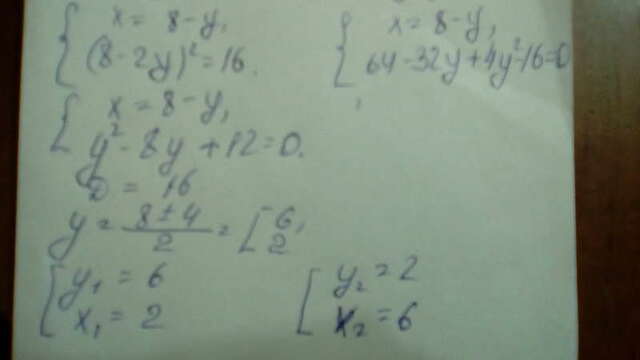 { x = 8 - y,
(8 - 2y)² = 16.
{ x = 8 - y,
64 - 32y + 4y² - 16 = 0
{ x = 8 - y,
y² - 8y + 12 = 0.
D = 16
y = (8 ± 4)/2 = [ 6,
2
{ y₁ = 6
x₁ = 2
[ y₂ = 2
x₂ = 6